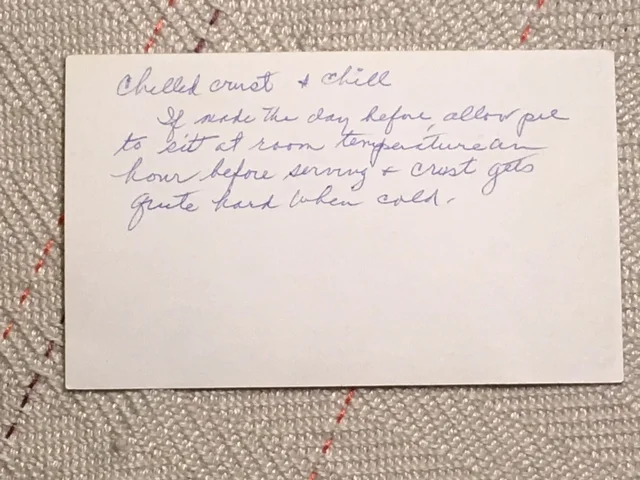 Chilled crust & chill
If made the day before, allow pie
to sit at room temperature an
hour before serving & crust gets
quite hard when cold.